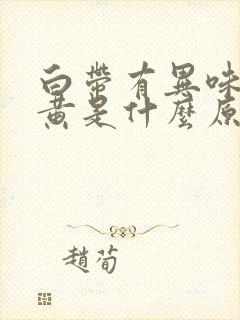 白帶有異味
黃是什麼原
趙荀